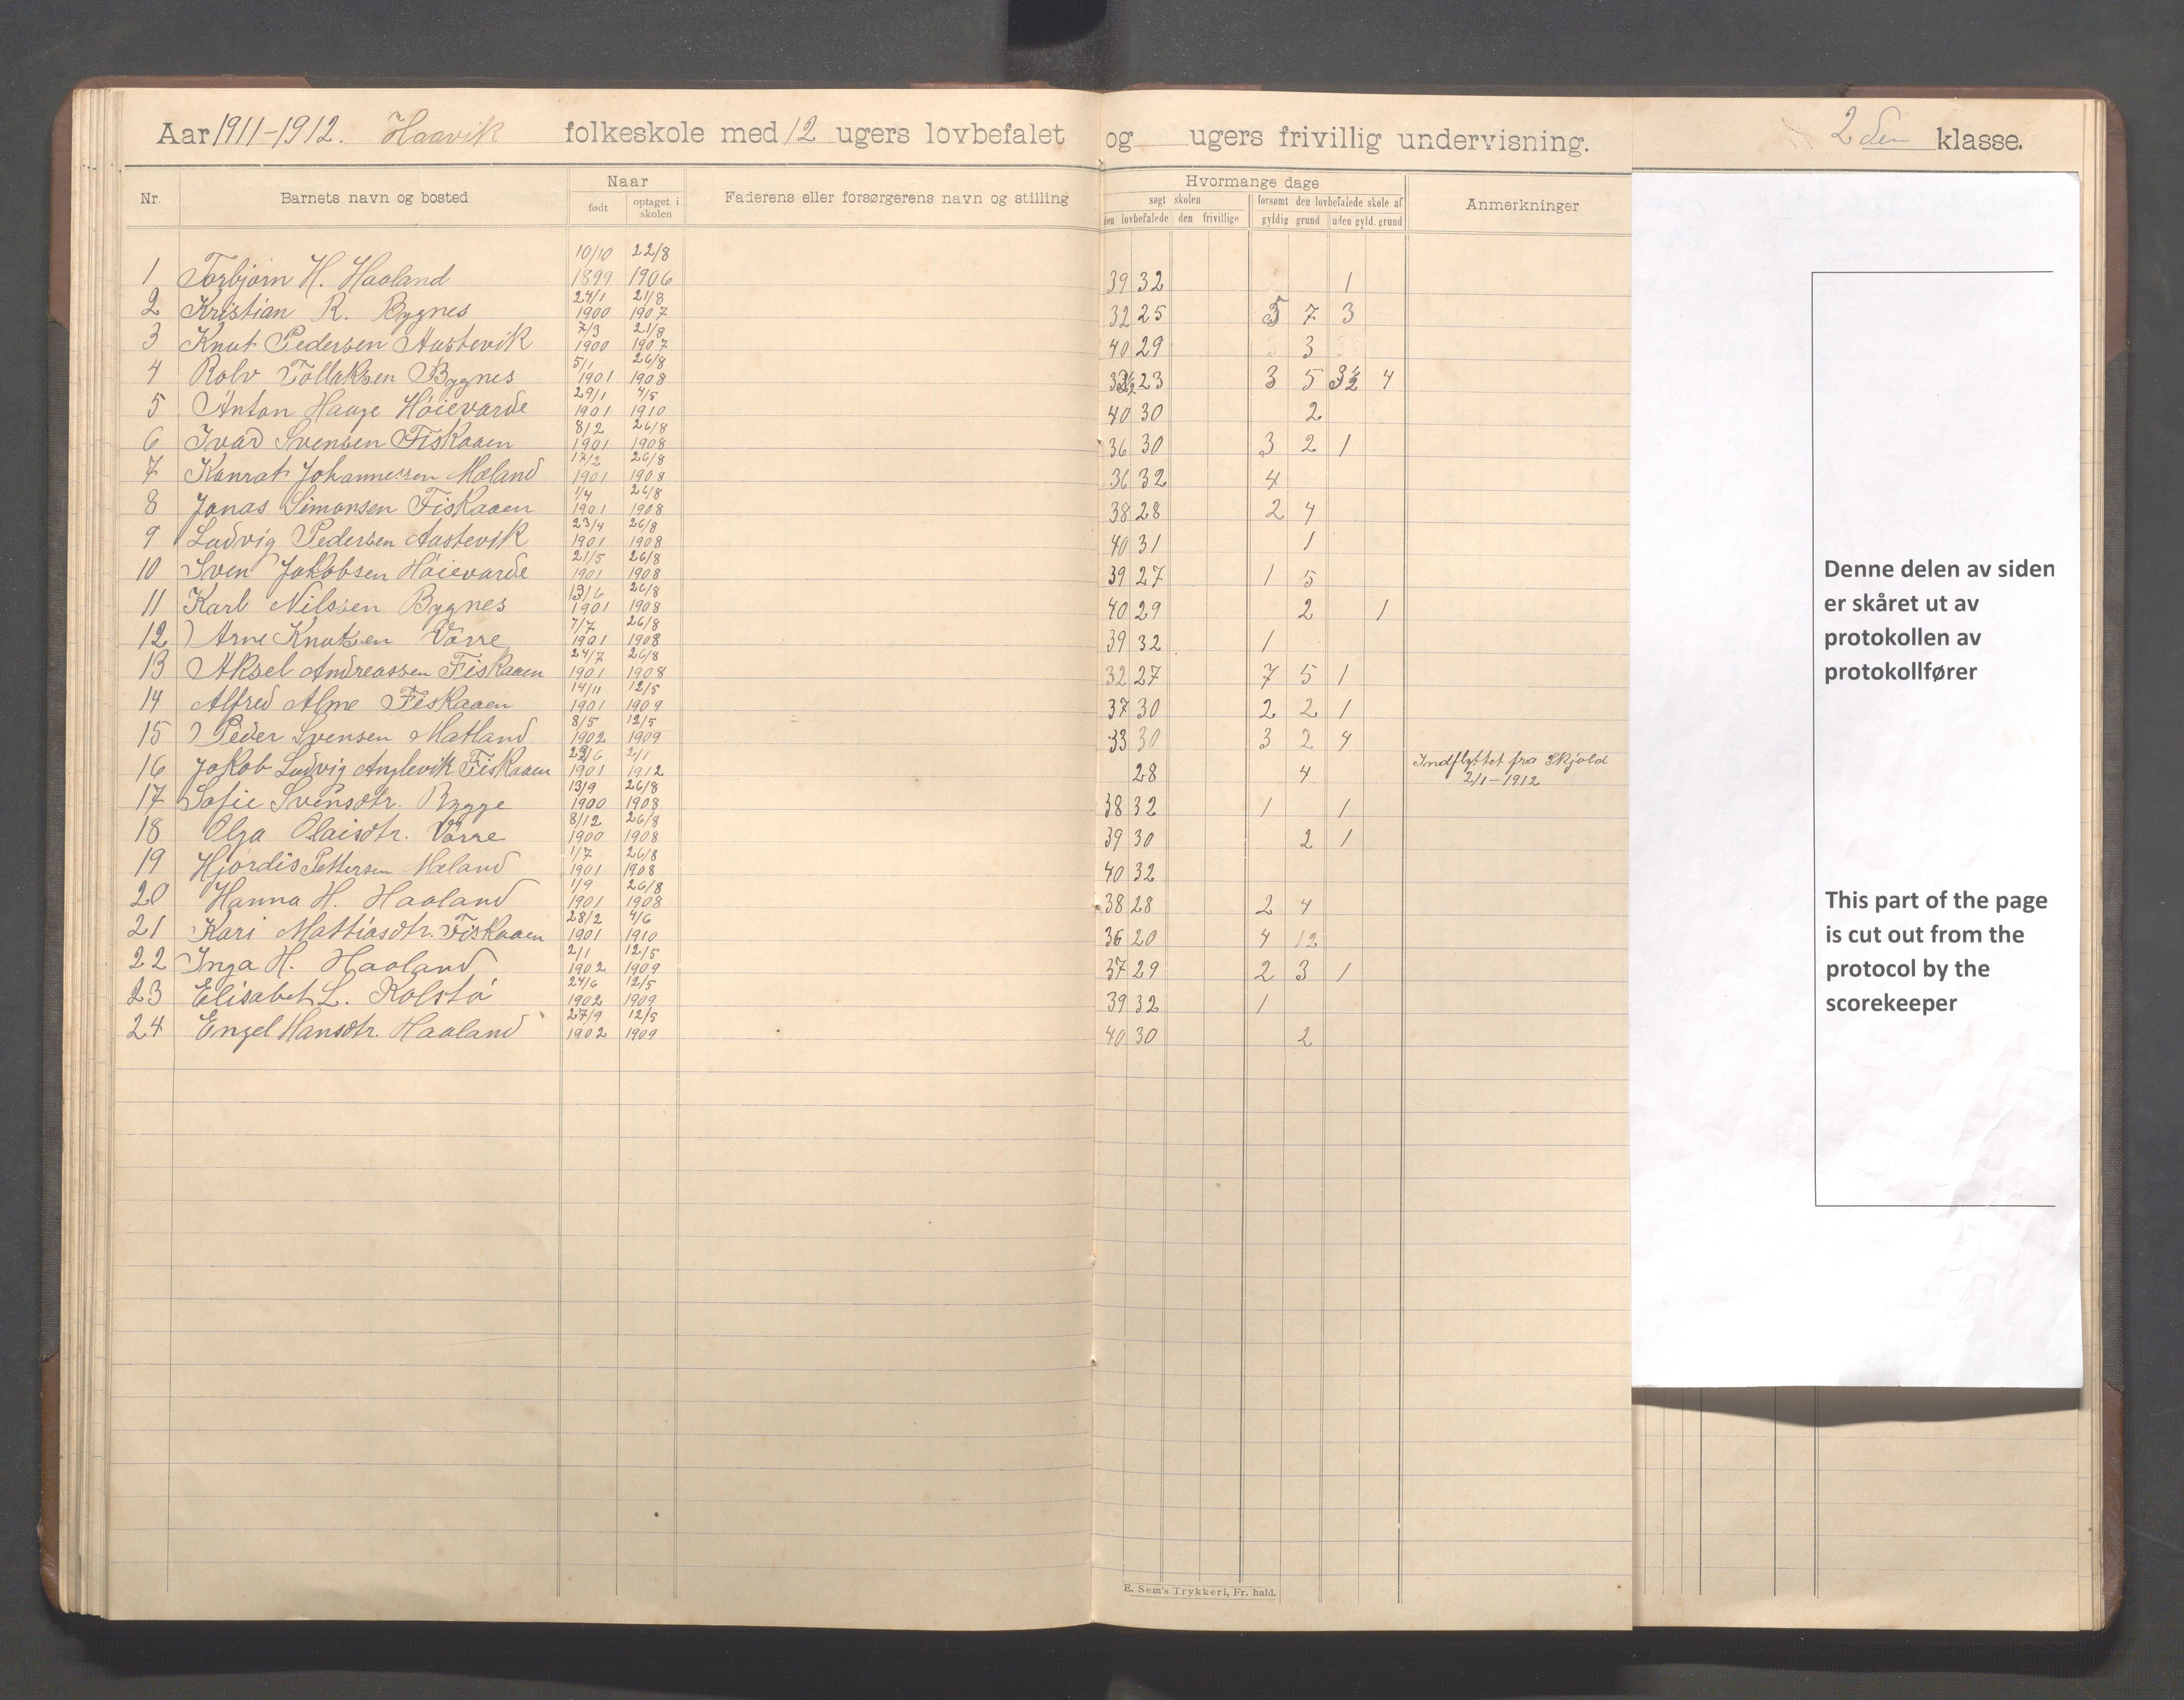 Aar 1911-1912. Haavik folkeskole med 12 ugers lovbefalet og ugers frivillig undervisning. 2den klasse.
Nr. Barnets navn og bosted Naar Faderens eller forsørgerens navn og stilling Hvormange dage Anmerkninger
født optaget i skolen søgt skolen forsømt den lovbefalede skole af
den lovbefalede den frivillige gyldig grund uden gyld. grund
1 Torbjørn H. Haaland 10/10 1899 22/8 1906 39 32 1
2 Kristian R. Bygnes 24/1 1900 21/8 1907 32 25 5 7 3
3 Knut Pedersen Austevik 7/3 1900 21/8 1907 40 29 3
4 Rolv Tollaksen Bygnes 5/1 1901 26/8 1908 33½ 23 3 5 3½ 4
5 Anton Hauge Høievarde 29/1 1901 4/5 1910 40 30 2
6 Ivar Svensen Fiskaaen 8/2 1901 26/8 1908 36 30 3 2 1
7 Konrat Johannessen Mæland 17/2 1901 26/8 1908 36 32 4
8 Jonas Simonsen Fiskaaen 1/4 1901 26/8 1908 38 28 2 4
9 Ludvig Pedersen Austevik 23/4 1901 26/8 1908 40 31 1
10 Sven Jakobsen Høievarde 21/5 1901 26/8 1908 39 27 1 5
11 Karl Nilssen Bygnes 13/6 1901 26/8 1908 40 29 2 1
12 Arne Knutsen Vorre 7/7 1901 26/8 1908 39 32 1
13 Aksel Andreassen Fiskaaen 24/7 1901 26/8 1908 32 27 7 5 1
14 Alfred Alme Fiskaaen 14/11 1901 12/5 1909 37 30 2 2 1
15 Peder Svensen Matland 8/5 1902 12/5 1909 33 30 3 2 4
16 Jakob Ludvig Anglevik Fiskaaen 1901 2/1 1912 28 4 Indflyttet fra Skjold
2/1-1912
17 Sofie Svensdtr. Bygge 13/9 1900 26/8 1908 38 32 1 1
18 Olga Olaisdtr. Vorre 8/12 1900 26/8 1908 39 30 2 1
19 Hjørdis Pettersen Mæland 1/7 1901 26/8 1908 40 32
20 Hanna H. Haaland 1/9 1901 26/8 1908 38 28 2 4
21 Kari Mattiasdtr. Fiskaaen 28/2 1901 4/6 1910 36 20 4 12
22 Inga H. Haaland 2/1 1902 12/5 1909 37 29 2 3 1
23 Elisabet L. Kolstø 24/6 1902 12/5 1909 39 32 1
24 Engel Hansdtr. Haaland 27/9 1902 12/5 1909 40 30 2
E. Sem's Trykkeri, Fr. hald.
Denne delen av siden
er skåret ut av
protokollen av
protokollfører
This part of the page
is cut out from the
protocol by the
scorekeeper